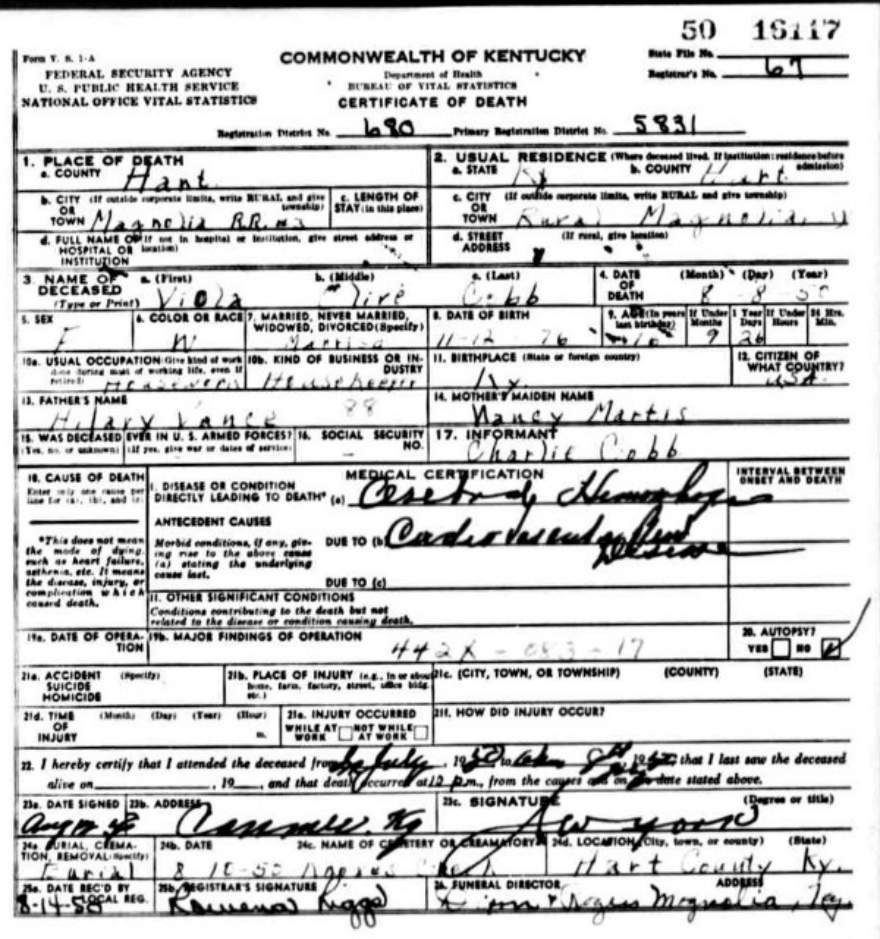 50 16117
Form V. S. 1-A
FEDERAL SECURITY AGENCY
U. S. PUBLIC HEALTH SERVICE
NATIONAL OFFICE VITAL STATISTICS
COMMONWEALTH OF KENTUCKY
Department of Health
BUREAU OF VITAL STATISTICS
CERTIFICATE OF DEATH
State File No.
Registrar's No. 67
Registration District No. 680 Primary Registration District No. 5831
1. PLACE OF DEATH
a. COUNTY Hart
2. USUAL RESIDENCE (Where deceased lived. If institution: residence before admission)
a. STATE Ky b. COUNTY Hart
b. CITY (If outside corporate limits, write RURAL and give township)
OR
TOWN Magnolia R.R.
c. LENGTH OF STAY (in this place)
c. CITY (If outside corporate limits, write RURAL and give township)
OR
TOWN Rural Magnolia
d. FULL NAME OF (If not in hospital or institution, give street address or location)
HOSPITAL OR
INSTITUTION
d. STREET ADDRESS (If rural, give location)
3. NAME OF DECEASED (Type or Print)
a. (First) b. (Middle) c. (Last)
Viola Cobb
4. DATE OF DEATH (Month) (Day) (Year)
8-8-50
5. SEX
F
6. COLOR OR RACE
W
7. MARRIED, NEVER MARRIED, WIDOWED, DIVORCED (Specify)
Married
8. DATE OF BIRTH
11-12-76
9. AGE (In years last birthday) If Under 1 Year Months Days If Under 24 Hrs. Hours Min.
9 26
10a. USUAL OCCUPATION (Give kind of work done during most of working life, even if retired)
10b. KIND OF BUSINESS OR INDUSTRY
Housekeeper
11. BIRTHPLACE (State or foreign country)
Ky.
12. CITIZEN OF WHAT COUNTRY?
USA
13. FATHER'S NAME
Hilary Vance 88
14. MOTHER'S MAIDEN NAME
Nancy Martis
15. WAS DECEASED EVER IN U. S. ARMED FORCES?
(Yes, no, or unknown) (If yes, give war or dates of service)
16. SOCIAL SECURITY NO.
17. INFORMANT
Charlie Cobb
18. CAUSE OF DEATH
Enter only one cause per line for (a), (b), and (c)
MEDICAL CERTIFICATION
INTERVAL BETWEEN ONSET AND DEATH
I. DISEASE OR CONDITION
DIRECTLY LEADING TO DEATH* (a) Hemorrhage
*This does not mean the mode of dying, such as heart failure, asthenia, etc. It means the disease, injury, or complication which caused death.
ANTECEDENT CAUSES
Morbid conditions, if any, giving rise to the above cause (a) stating the underlying cause last.
DUE TO (b) Cardiovascular
Disease
DUE TO (c)
II. OTHER SIGNIFICANT CONDITIONS
Conditions contributing to the death but not
related to the disease or condition causing death.
19a. DATE OF OPERATION
19b. MAJOR FINDINGS OF OPERATION
442X - 083 - 17
20. AUTOPSY?
YES NO
21a. ACCIDENT SUICIDE HOMICIDE (Specify)
21b. PLACE OF INJURY (e.g., in or about home, farm, factory, street, office bldg. etc.)
21c. (CITY, TOWN, OR TOWNSHIP) (COUNTY) (STATE)
21d. TIME OF INJURY (Month) (Day) (Year) (Hour) m.
21e. INJURY OCCURRED
WHILE AT WORK NOT WHILE AT WORK
21f. HOW DID INJURY OCCUR?
22. I hereby certify that I attended the deceased from July, 1950 to 19 , that I last saw the deceased
alive on , 19 , and that death occurred at 12 p.m., from the causes and on the date stated above.
23a. DATE SIGNED
23b. ADDRESS
Ky
23c. SIGNATURE (Degree or title)
24a. BURIAL, CREMATION, REMOVAL (Specify)
Burial
24b. DATE
8-10-50
24c. NAME OF CEMETERY OR CREMATORY
24d. LOCATION (City, town, or county) (State)
Hart County Ky.
25a. DATE REC'D BY LOCAL REG.
8-14-50
25b. REGISTRAR'S SIGNATURE
Rowena Riggs
26. FUNERAL DIRECTOR ADDRESS
Rogers Magnolia, Ky.